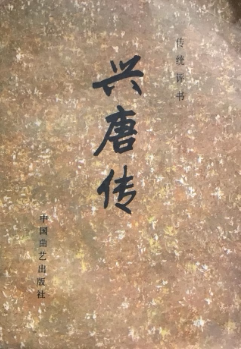 传统评书
兴唐传
中国曲艺出版社